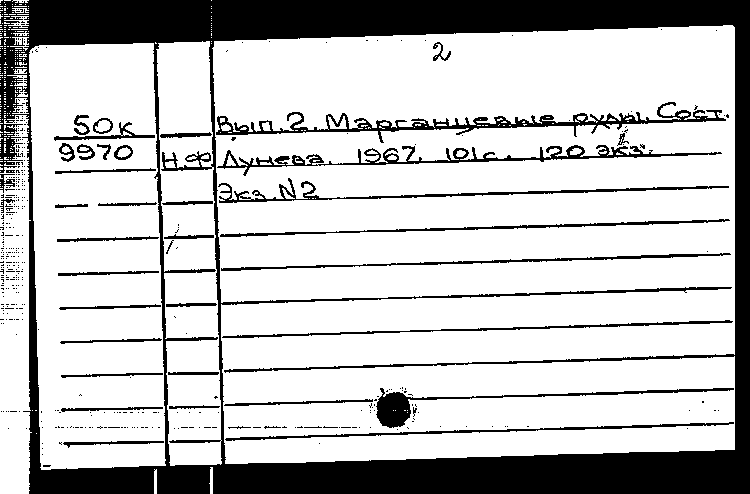 2
50к Вып. 2. Марганцевые руды. Сост.
9970 Н.Ф. Лунева. 1967. 101с. 120 экз.
Экз. N2